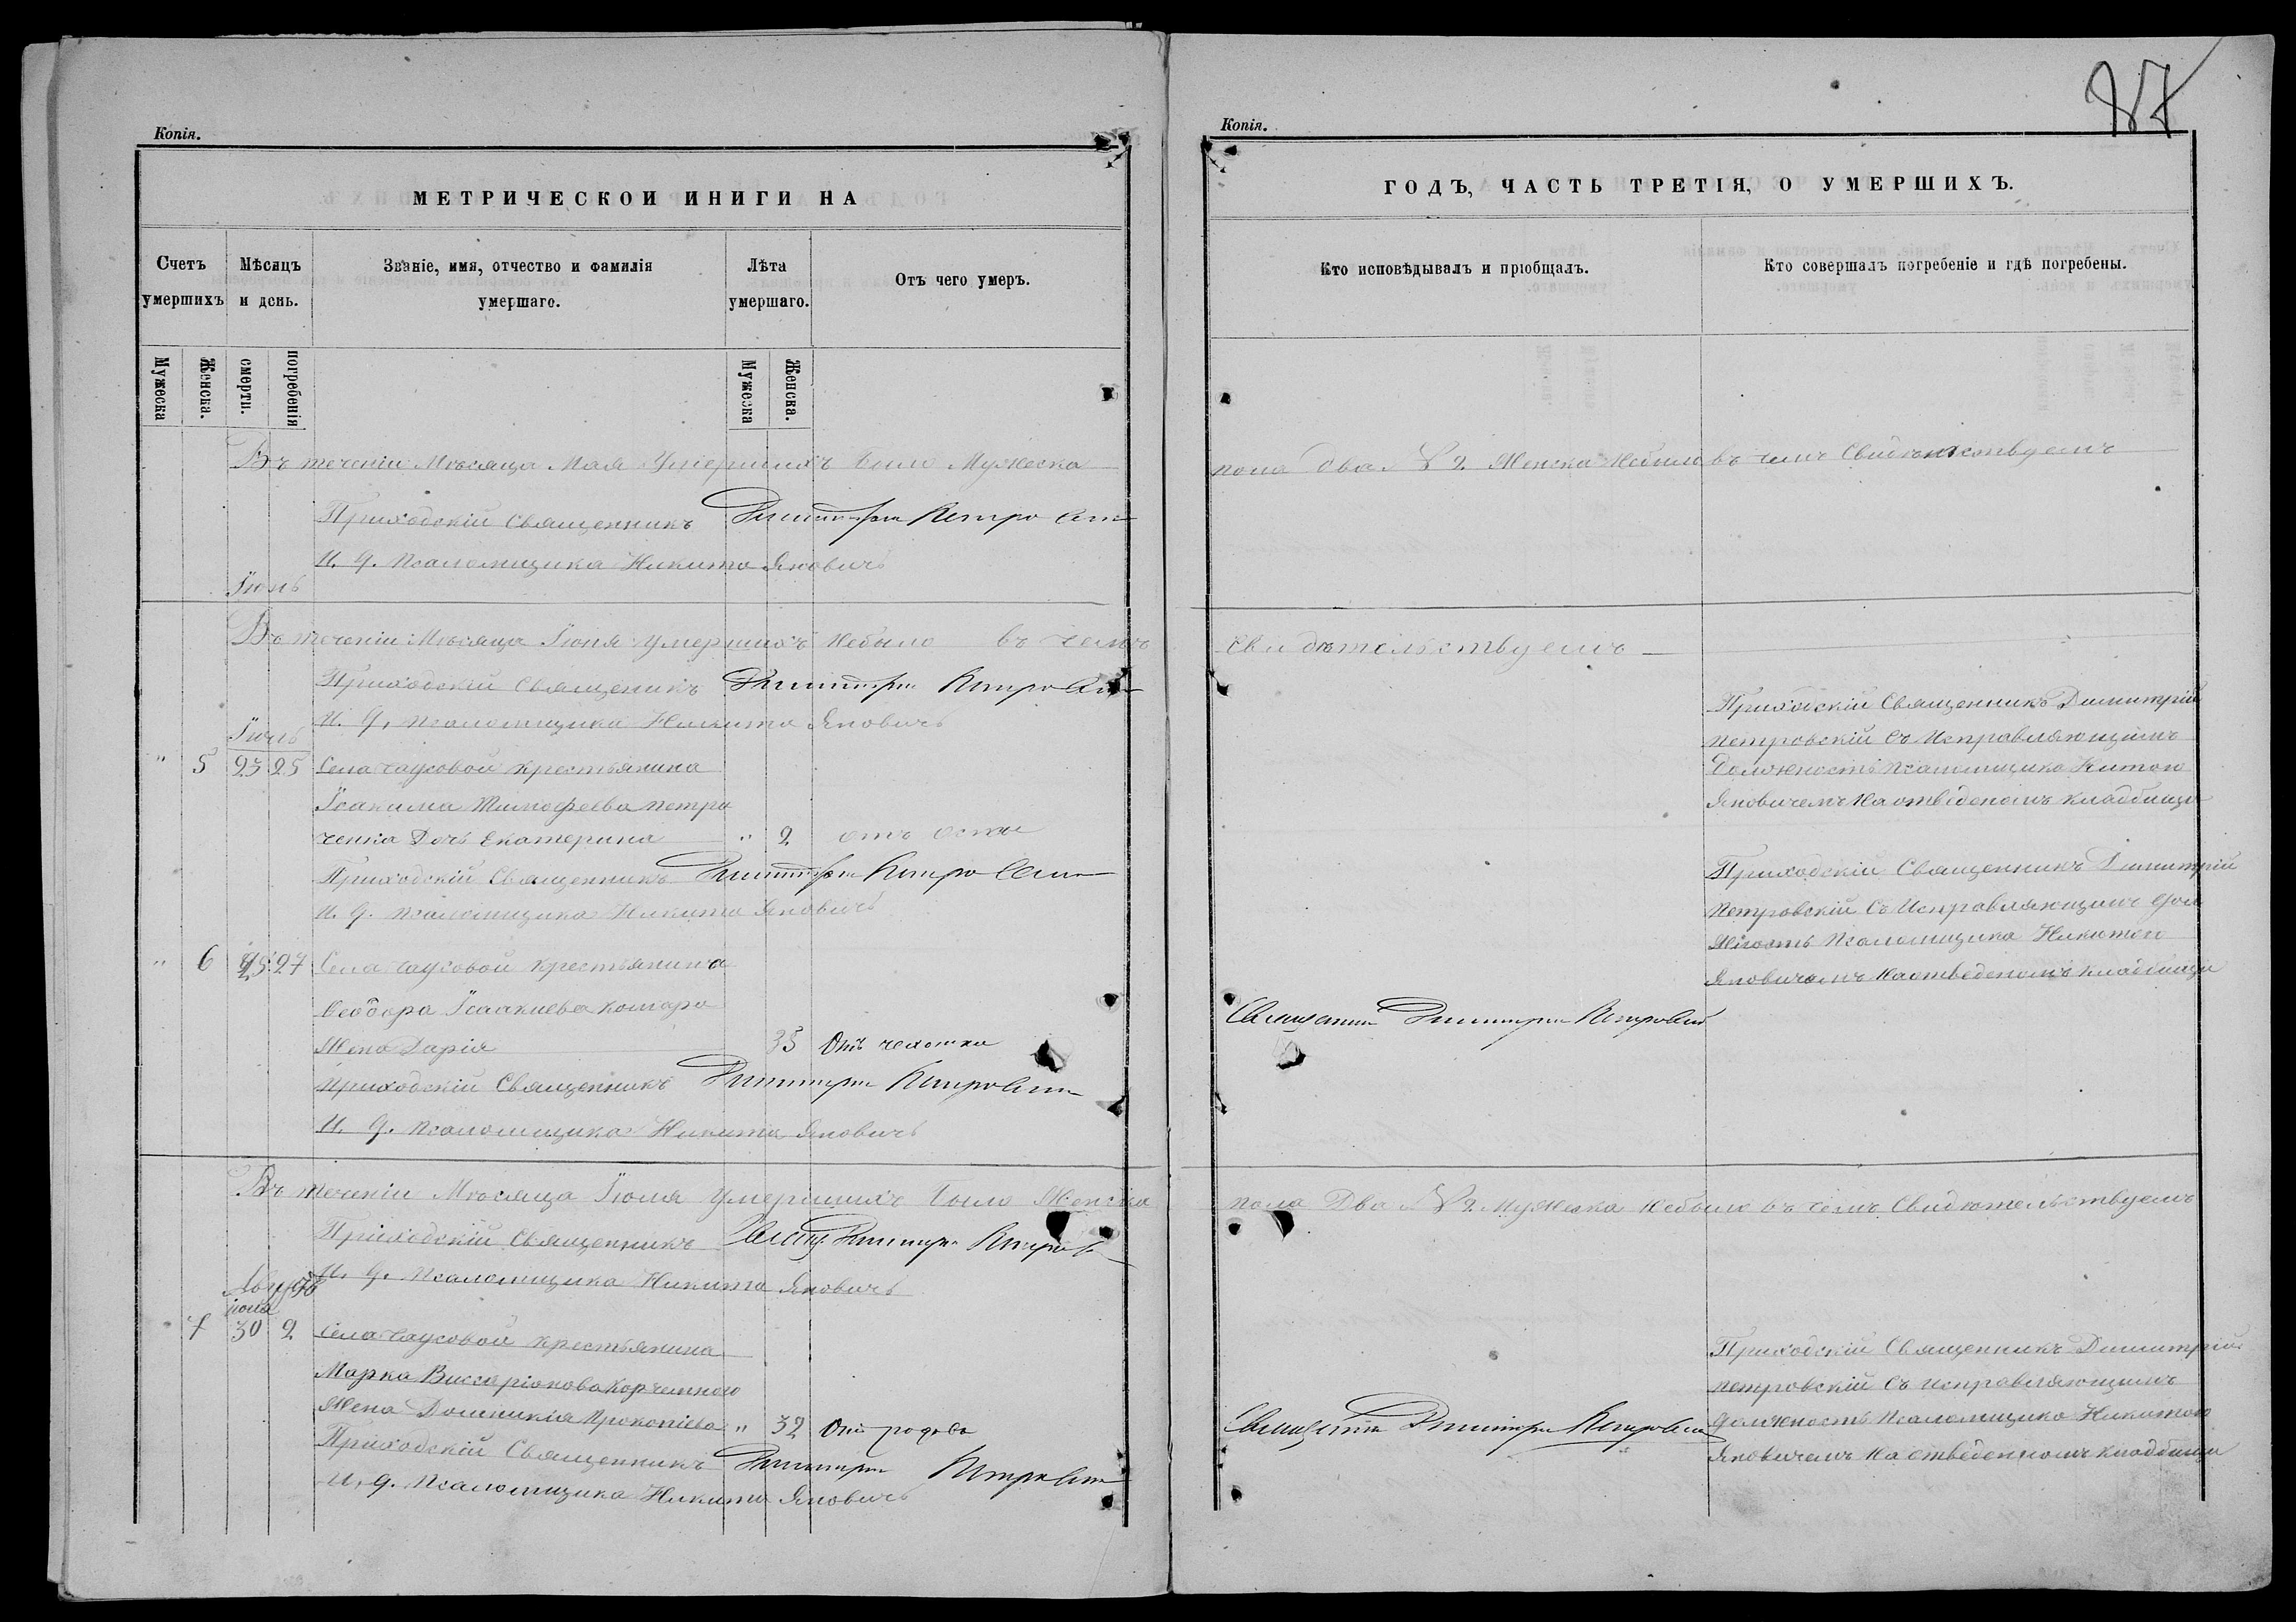 Копія.
МЕТРИЧЕСКОИ ИНИГИ НА
Счетъ умершихъ
Мѣсяцъ и день.
Званіе, имя, отчество и фамилія умершаго.
Лѣта умершаго.
Отъ чего умеръ.
Мужеска
Женска.
смерти.
погребенія
Мужеска
Женска.
Въ теченіи Мѣсяца Мая Умершихъ было Мужеска
Приходскій Священникъ Димитрій Петровскій
И. д. псаломщика Никита Яновичъ
Іюнь
Въ теченіи Мѣсяца Іюня умершихъ небыло въ чемъ
Приходскій Священикъ Димитрій Петровскій
И. д. псаломщика Никита Яновичъ
Іюль
" 5 23 25 Села Чаусовой крестьянина
Іоакима Тимофеева Петри
ченка Дочь Екатерина " 2 отъ оспы
Приходскій Священникъ Димитрій Петровскій
И. д. псаломщика Никита Яновичъ
" 6 25 27 Села Чаусовой крестьянина
Феодора Ісаакиева Комара
Жена Дарія 35 Отъ чахотки
Приходскій Священникъ Димитрій Петровскій
И. д. псаломщика Никита Яновичъ
Въ теченіи Мѣсяца Іюля умершихъ было Женска
Приходскій Священникъ Димитрій Петровскій
И. д. псаломщика Никита Яновичъ
Августъ
іюля
7 30 2 Села Чаусовой крестьянина
Марка Виссаріонова Корчемного
Жена Домникія Прокопіева " 32 Отъ родовъ
Приходскій Священникъ Димитрій Петровскій
И. д. псаломщика Никита Яновичъ
Копія.
87
ГОДЪ, ЧАСТЬ ТРЕТІЯ, О УМЕРШИХЪ.
Кто исповѣдывалъ и пріобщалъ.
Кто совершалъ погребеніе и гдѣ погребены.
пола два 2 Женска небыло въ чемъ Свидѣтельствуемъ
Свидѣтельствуемъ
Приходскій Священникъ Димитрій
Петровскій съ Исправляющимъ
Должность псаломщика Никитою
Яновичемъ На отведеномъ кладбищи
Приходскій Священникъ Димитрій
Петровскій Съ Исправляющимъ дол
жность псаломщика Никитою
Яновичемъ На отведеномъ кладбищи
Священникъ Димитрій Петровскій
пола Два 2 Мужеска небыло въ чемъ Свидѣтельствуемъ
Приходскій Священникъ Димитрій
Петровскій Съ исправляющимъ
Священникъ Димитрій Петровскій должность псаломщика Никитою
Яновичемъ На отведенномъ кладбищи